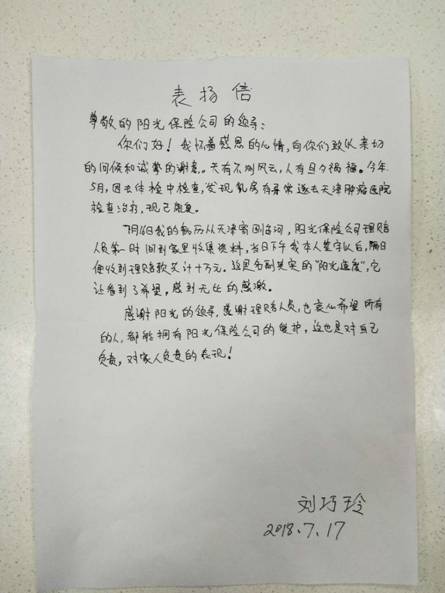 表扬信
尊敬的阳光保险公司的领导：
你们好！我怀着感恩的心情，向你们致以亲切
的问候和诚挚的谢意。天有不测风云，人有旦夕祸福。今年
5月，因去体检中检查，发现乳房有异常遂去天津肿瘤医院
检查治疗，现已康复。
7月14日我的病历从天津寄回，阳光保险公司理赔
人员第一时间到家里收集资料，当日下午我本人签字以后，隔日
便收到理赔款共计十万元。这是名副其实的“阳光速度”，它
让看到了希望，感到无比的感激。
感谢阳光的领导，感谢理赔人员，也衷心希望所有
的人，都能拥有阳光保险公司的维护，这也是对自己
负责，对家人负责的表现！
刘巧玲
2018.7.17